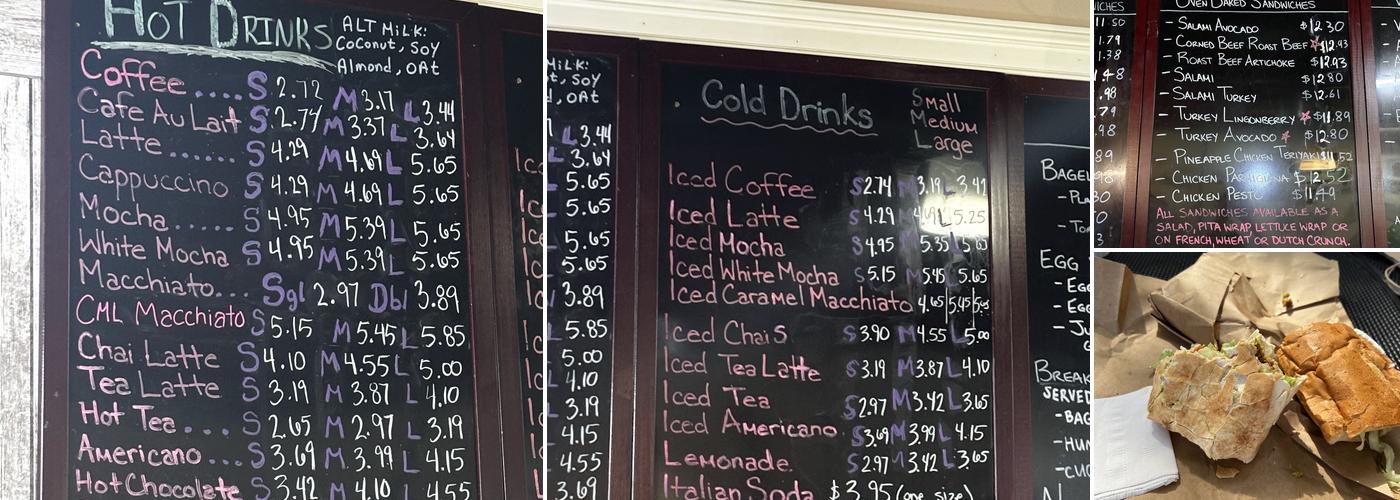 HOT DRINKS
ALT MiLK:
Coconut, Soy
Almond, OAt
Coffee..... S 2.72 M 3.17 L 3.44
Cafe Au Lait S 2.74 M 3.37 L 3.64
Latte...... S 4.29 M 4.69 L 5.65
Cappuccino S 4.29 M 4.69 L 5.65
Mocha...... S 4.95 M 5.39 L 5.65
White Mocha S 4.95 M 5.39 L 5.65
Macchiato... Sgl 2.97 Dbl 3.89
CML Macchiato S 5.15 M 5.45 L 5.85
Chai Latte S 4.10 M 4.55 L 5.00
Tea Latte S 3.19 M 3.87 L 4.10
Hot Tea... S 2.65 M 2.97 L 3.19
Americano.... S 3.69 M 3.99 L 4.15
Hot Chocolate S 3.42 M 4.10 L 4.55
MiLK:
t, Soy
, OAt
L 3.44
L 3.64
L 5.65
L 5.65
5.65
L 5.65
3.89
L 5.85
5.00
L 4.10
3.19
4.15
4.55
3.69
Cold Drinks
Small
Medium
Large
Iced Coffee S 2.74 M 3.19 L
Iced Latte S 4.29 L 5.25
Iced Mocha S 4.95 M 5.35 L
Iced White Mocha S 5.15 M 5.45 L 5.65
Iced Caramel Macchiato 4.65 5.45
Iced Chai S S 3.90 M 4.55 L 5.00
Iced Tea Latte S 3.19 M 3.87 L 4.10
Iced Tea S 2.97 M 3.42 L 3.65
Iced Americano S 3.69 M 3.99 L 4.15
Lemonade. S 2.97 M 3.42 L 3.65
Italian Soda $3.95 (one size)
BAGEL
EGG
- EGG
- EGG
BREAK
SERVED
- BAG
- HUM
OVEN BAKED SANDWICHES
- SALAMI AVOCADO $12.30
- CORNED BEEF ROAST BEEF $12.93
- ROAST BEEF ARTICHOKE $12.93
- SALAMI $12.80
- SALAMI TURKEY $12.61
- TURKEY LINGONBERRY $11.89
- TURKEY AVOCADO $12.80
- PINEAPPLE CHICKEN TERIYAKI $11.52
- CHICKEN PARMIGIANA $12.52
- CHICKEN PESTO $11.49
ALL SANDWICHES AVAILABLE AS A
SALAD, PITA WRAP, LETTUCE WRAP OR
ON FRENCH, WHEAT OR DUTCH CRUNCH.